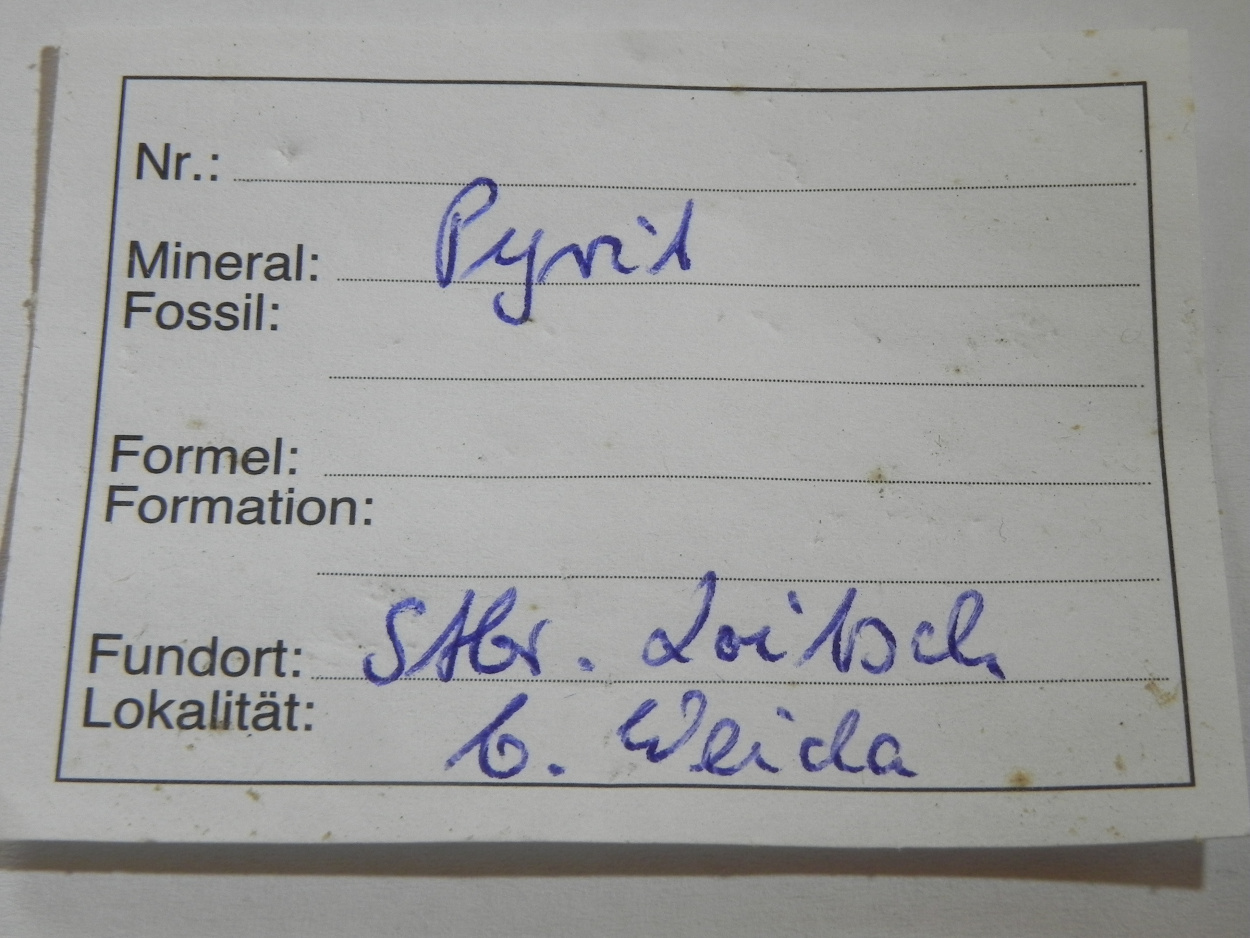 Nr.:
Mineral: Pyrit
Fossil:
Formel:
Formation:
Fundort: Stbr. Loitsch
Lokalität: b. Weida